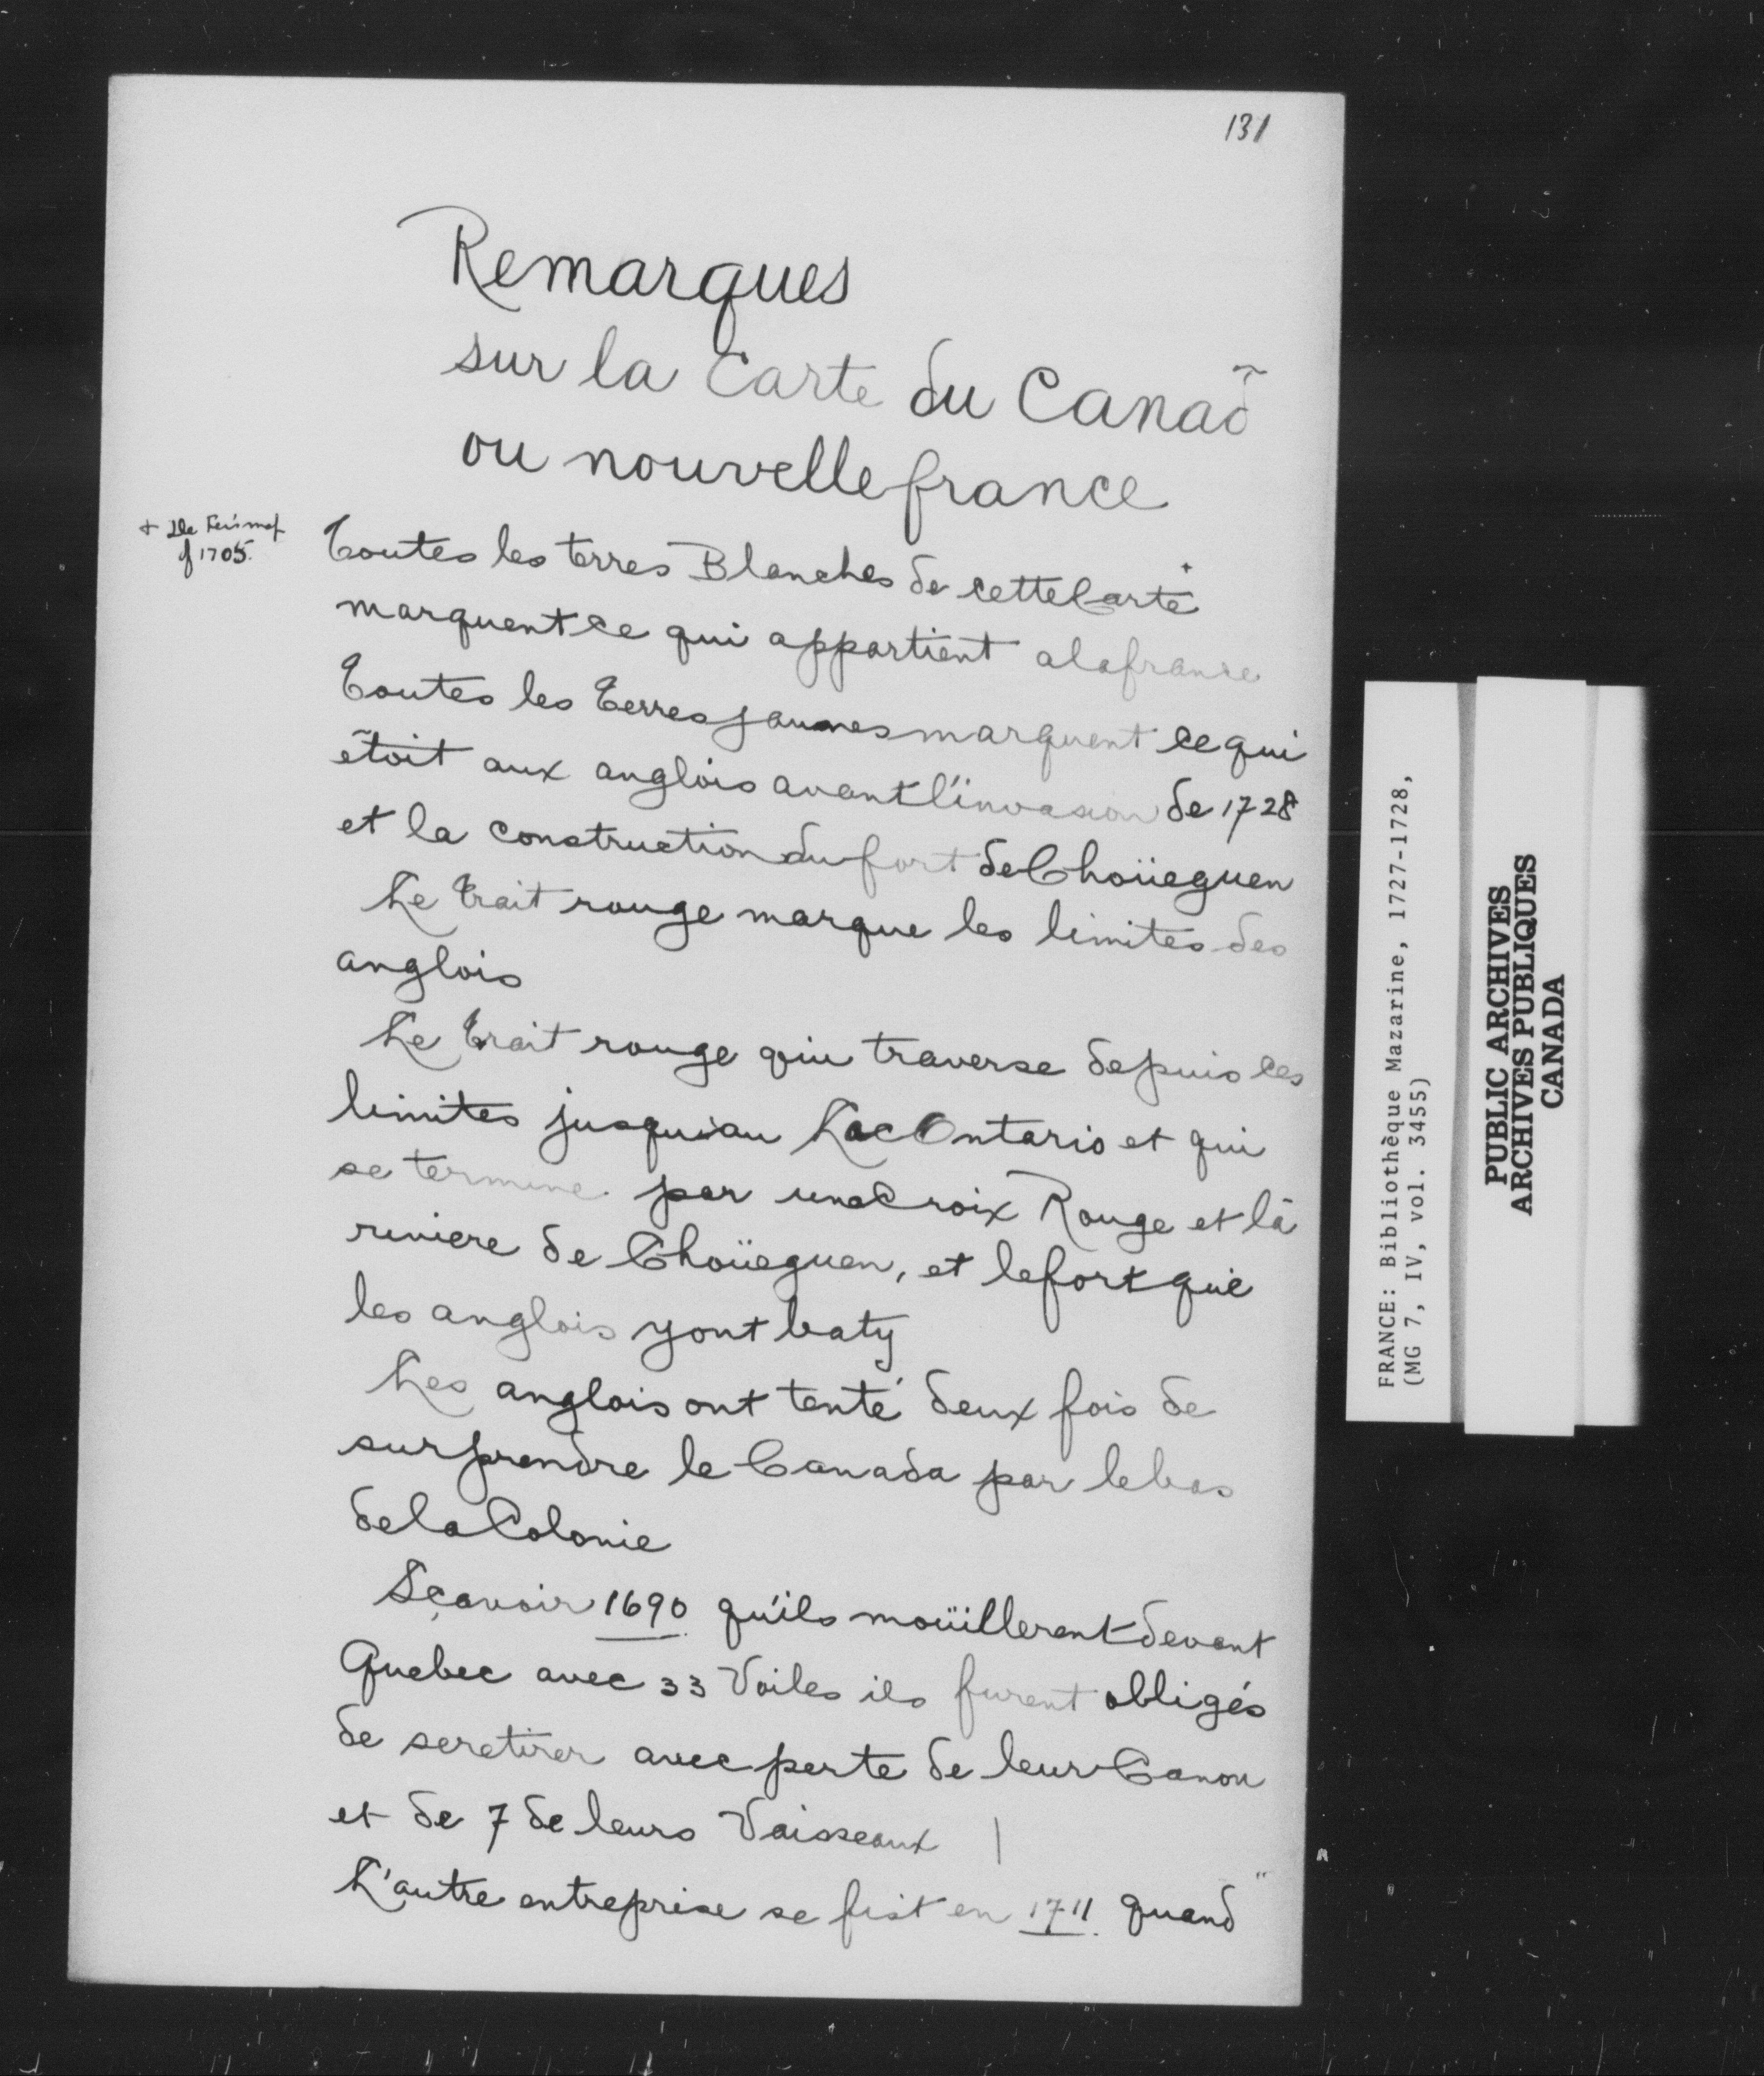 131
Remarques
sur la Carte du Canad̃
ou nouvellefrance
+ Ile
1705.
Toutes les terres Blanches de cetteCarte +
marquent ce qui appartient alafrance
Toutes les Terres jaunes marquent ce qui
étoit aux anglois avant l'invasion de 1728
et la construction du fort deChoüeguen
Le Trait rouge marque les limites des
anglois
Le Trait rouge qui traverse depuis ces
limites jusquiau Lac Ontario et qui
se termine par uneCroix Rouge et là
riviere de Choüeguen, et lefort que
les anglois yont baty
Les anglois ont tenté deux fois de
surprendre le Canada par lebas
delaColonie
Sçavoir 1690 qu'ils moüillerent devant
Quebec avec 33 Voiles ils furent obligés
de seretirer avec perte de leur Canon
et de 7 de leurs Vaisseaux |
L'autre entreprise se fist en 1711. quand "
FRANCE: Bibliothèque Mazarine, 1727-1728,
(MG 7, IV, vol. 3455)
PUBLIC ARCHIVES
ARCHIVES PUBLIQUES
CANADA